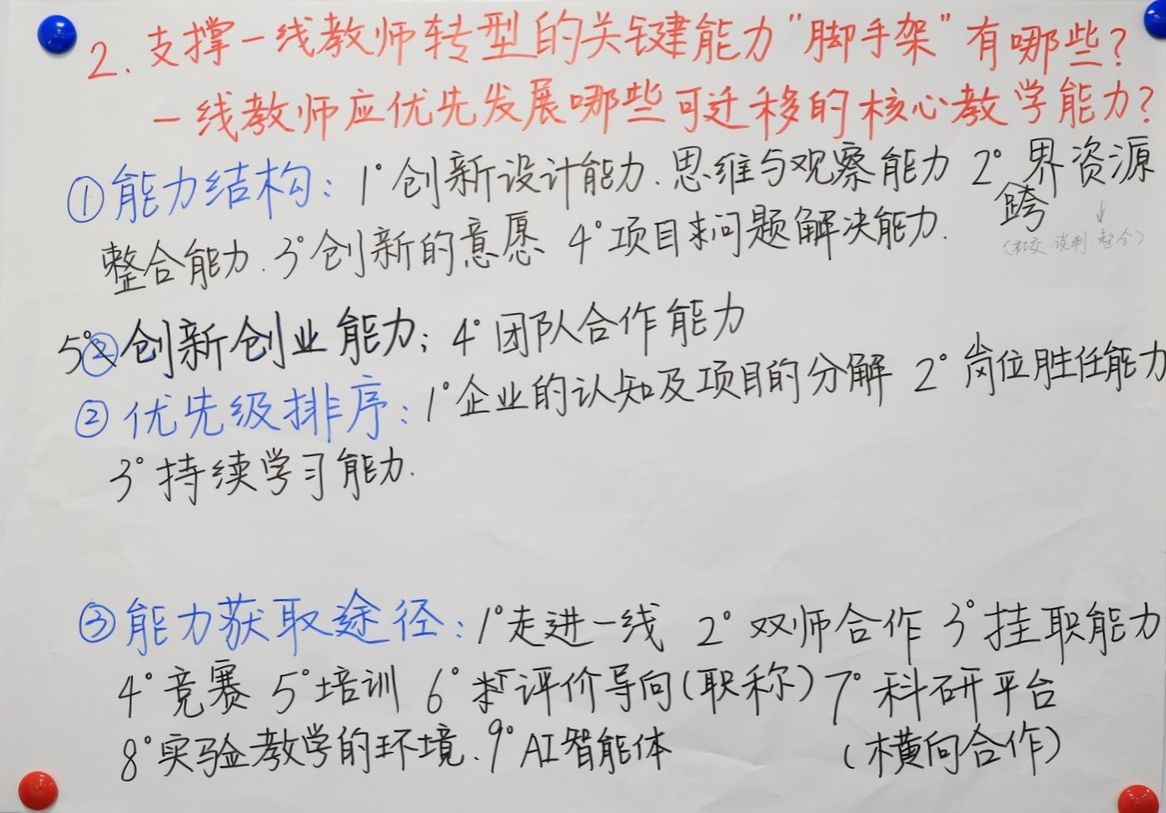 2. 支撑一线教师转型的关键能力“脚手架”有哪些?
一线教师应优先发展哪些可迁移的核心教学能力?
①能力结构: 1°创新设计能力、思维与观察能力 2°跨界资源
整合能力. 3°创新的意愿 4°项目来问题解决能力.
5°创新创业能力; 4°团队合作能力
②优先级排序: 1°企业的认知及项目的分解 2°岗位胜任能力
3°持续学习能力.
③能力获取途径: 1°走进一线 2°双师合作 3°挂职能力
4°竞赛 5°培训 6°评价导向(职称) 7°科研平台
(横向合作)
8°实验教学的环境. 9°AI智能体